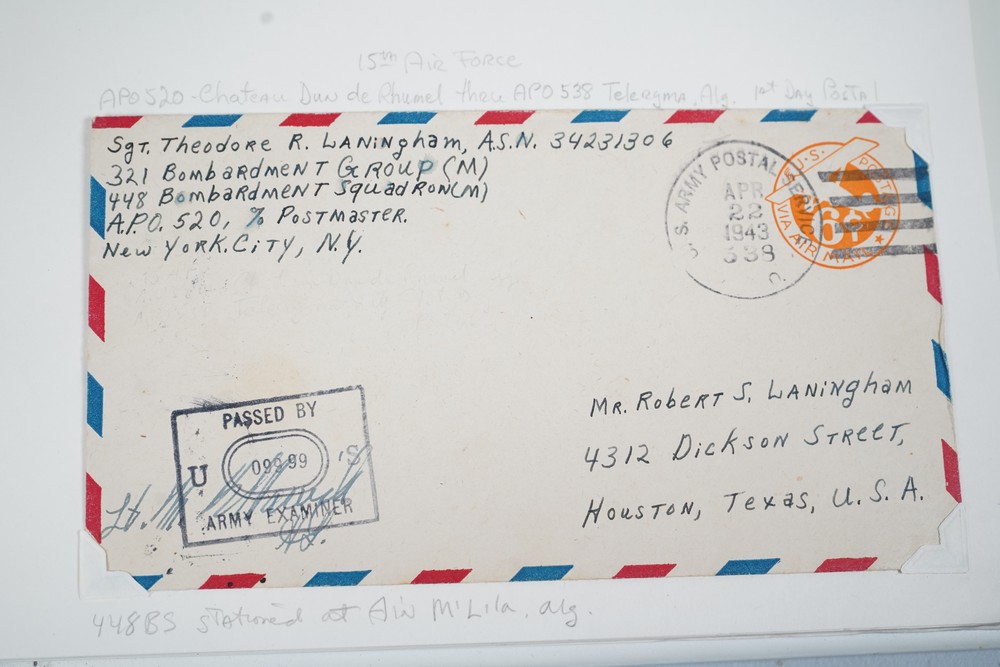 15th Air Force
APO 520 - Chateau Dun de Rhumel thru APO 538 Telergma, Alg. 1st Day Postal
Sgt. Theodore R. Laningham, A.S.N. 34231306
321 Bombardment Group (M)
448 Bombardment Squadron (M)
A.P.O. 520, % Postmaster.
New York. City, N.Y.
U.S. ARMY POSTAL SERVICE
APR
22
1943
538
U.S. POSTAGE
6¢
VIA AIR MAIL
PASSED BY
U 09999 S
ARMY EXAMINER
Lt.
Mr. Robert S. Laningham
4312 Dickson Street,
Houston, Texas, U.S.A.
448BS stationed at Ain M'Lila, alg.